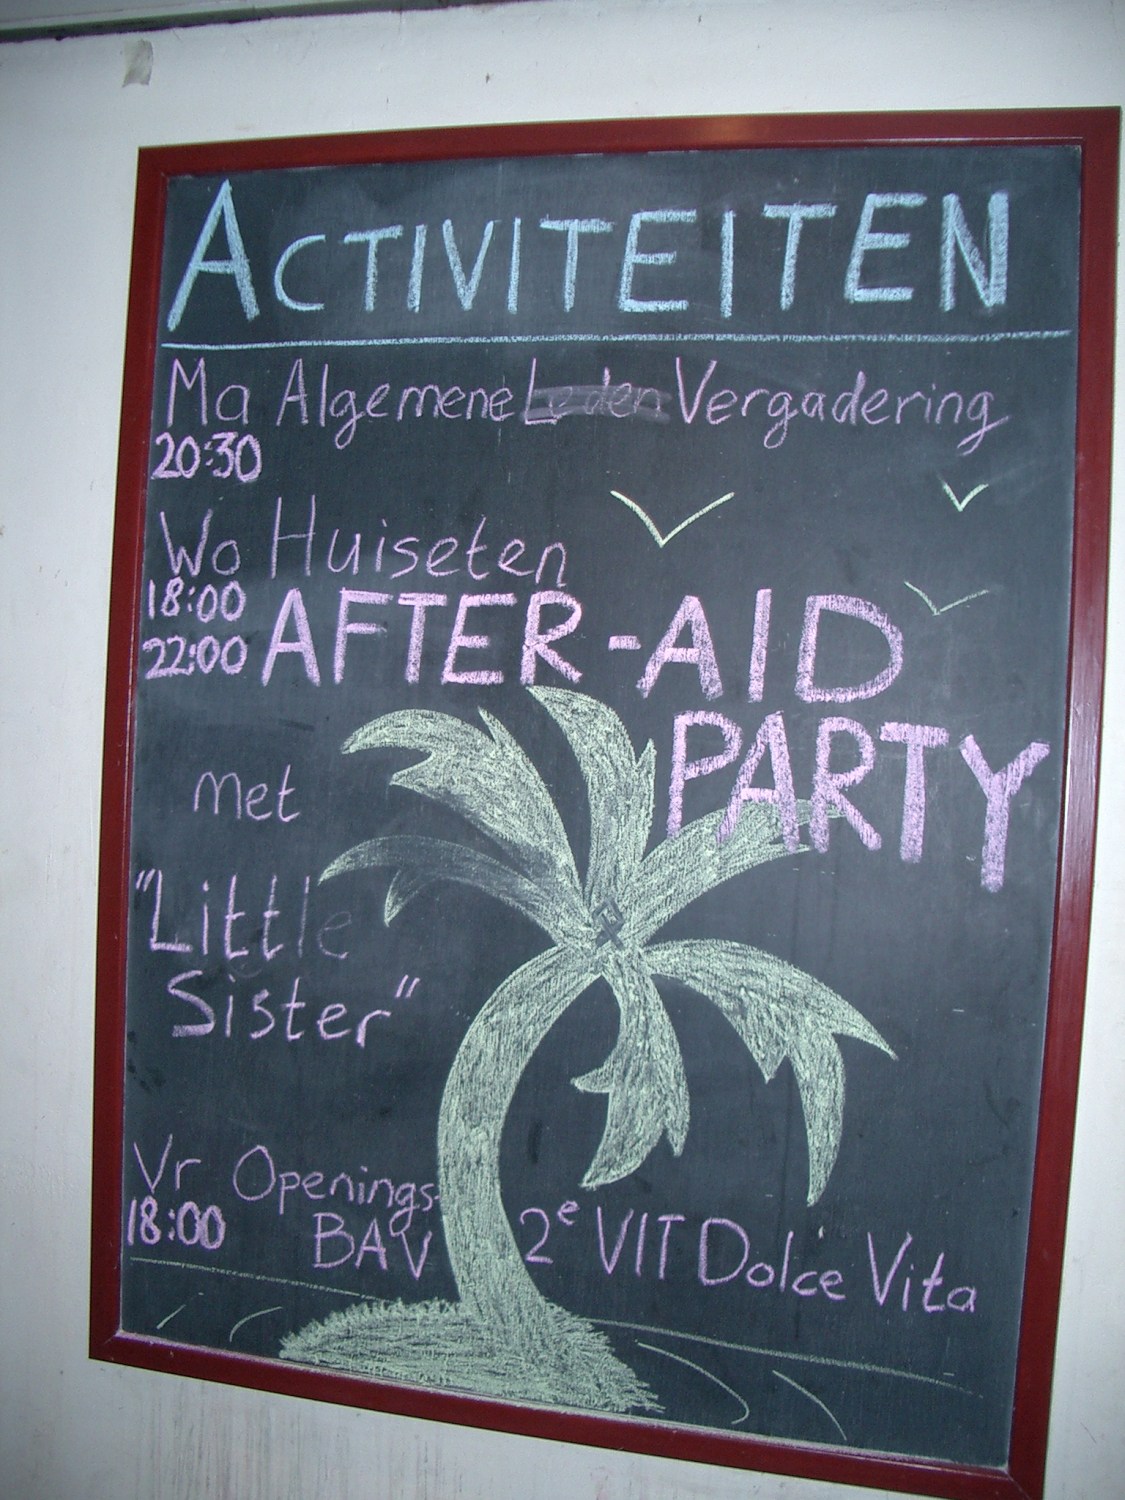 ACTIVITEITEN
Ma Algemene Leden Vergadering
20:30
Wo Huiseten
18:00
22:00 AFTER-AID
PARTY
met
"Little
Sister"
Vr Openings-
18:00 BAV 2e VIT Dolce Vita